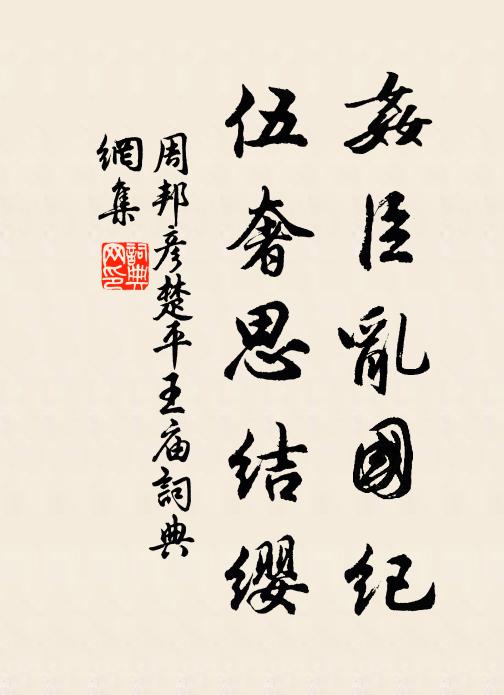 姦臣亂國紀
伍奢思結纓
周邦彥楚平王庙詞典
網集
詞典网印